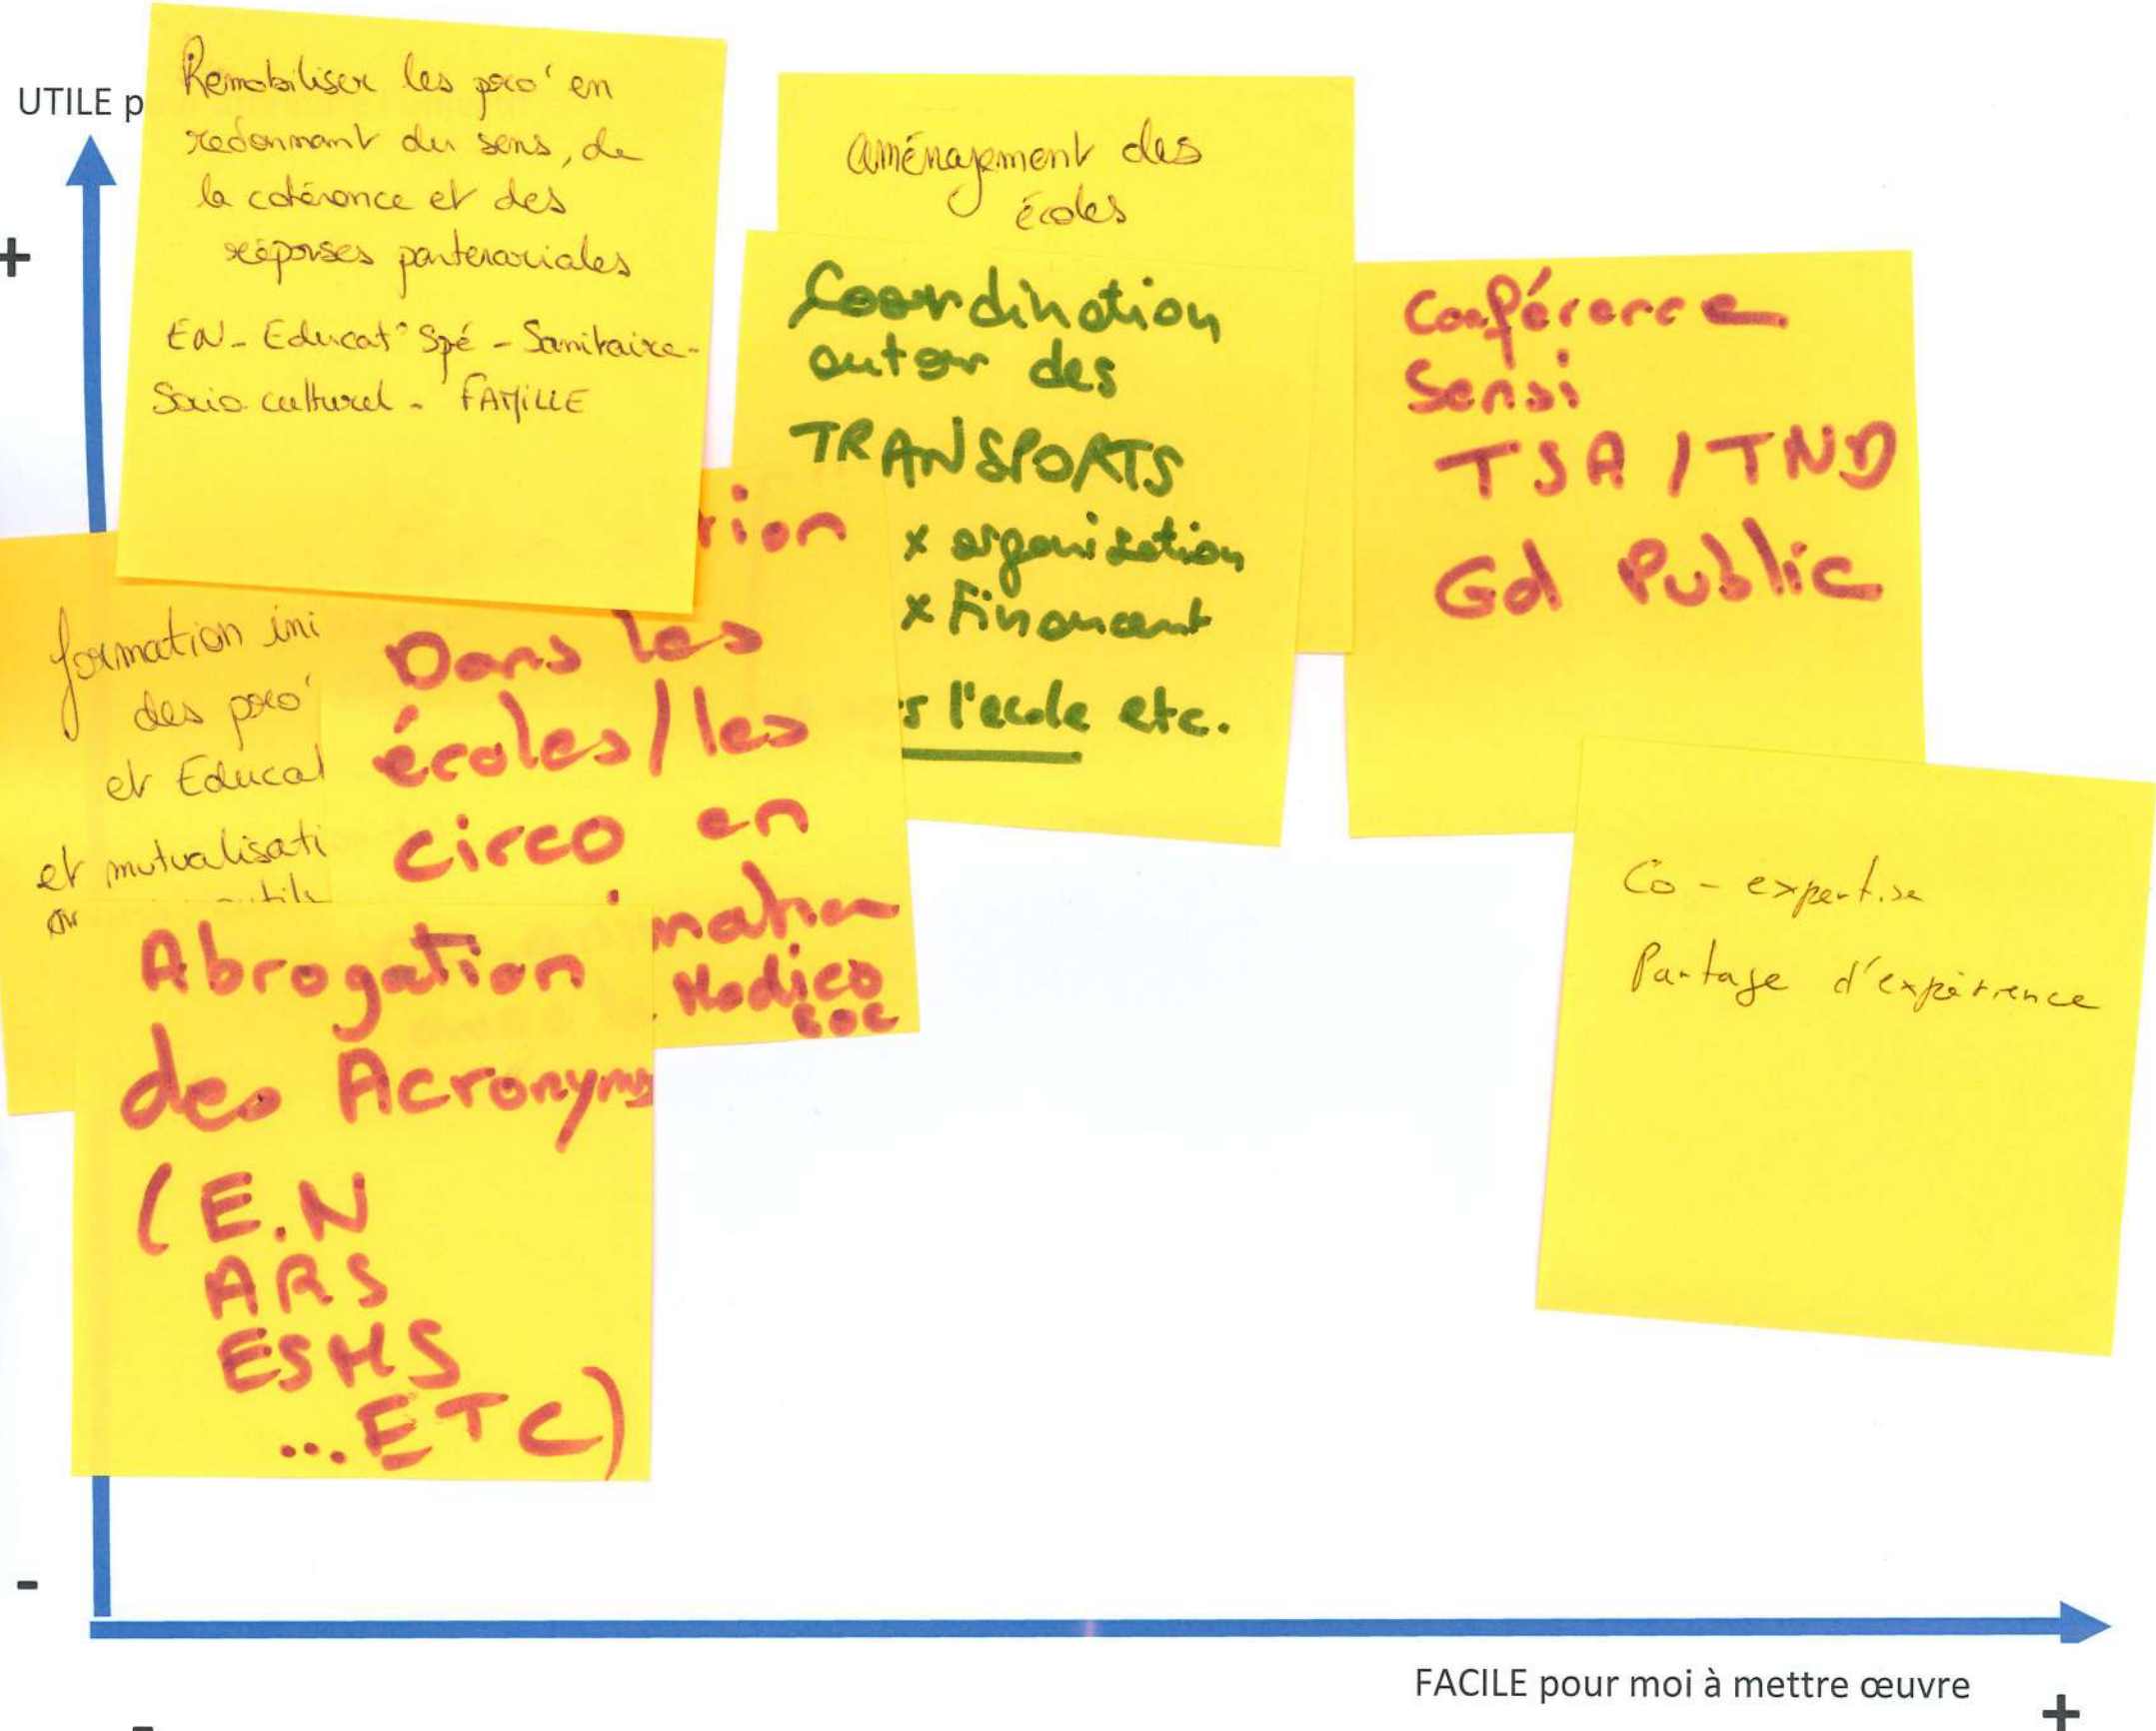 UTILE p
+
Remobiliser les pro' en
redonnant du sens, de
la cohérence et des
réponses partenariales
EN - Educat° Spé - Sanitaire -
Socio culturel - FAMILLE
aménagement des
écoles
Coordination
autour des
TRANSPORTS
x organisation
x Financent
s l'ecole etc.
Conférence
Sensi
TSA / TND
Gd Public
formation ini
des pro'
et Educat
et mutualisati
Dans les
écoles / les
circo en
Medico
soc
Abrogation
des Acronyms
(E.N
ARS
ESMS
...ETC)
Co-expertise
Partage d'expérience
-
FACILE pour moi à mettre œuvre
-
+